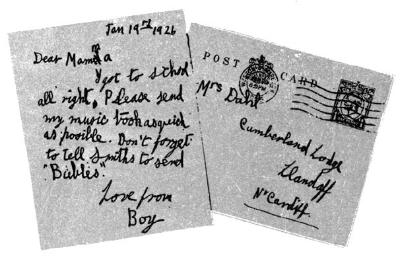 Jan 19rd 1926
Dear Mama
I got to school
all right. Please send
my music book as quick
as posible. Don't forget
to tell Smiths to send
"Bubles".
Love from
Boy
POST CARD
Mrs Dahl.
Cumberland Lodge
Llandaff
Nr Cardiff.